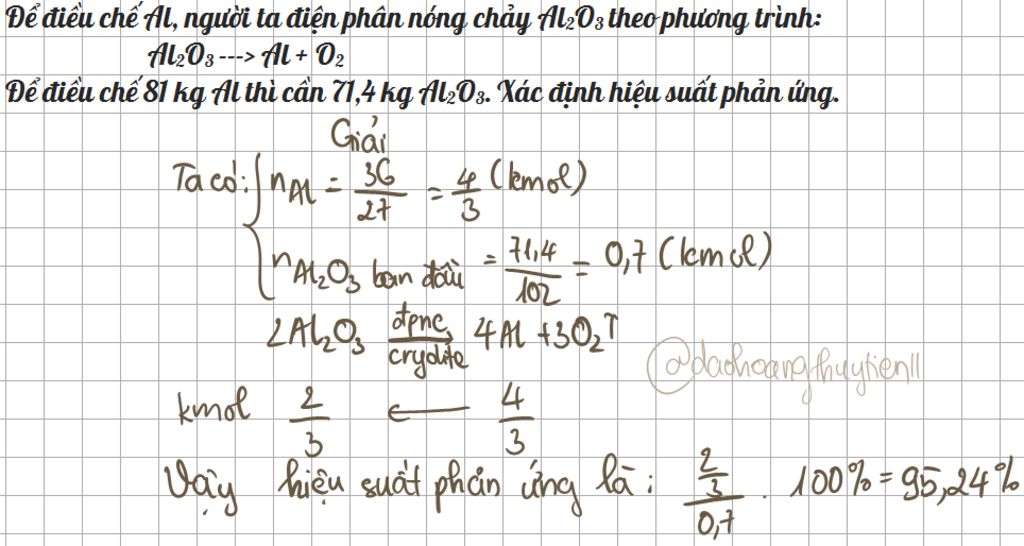 Để điều chế Al, người ta điện phân nóng chảy Al₂O₃ theo phương trình:
Al₂O₃ ---> Al + O₂
Để điều chế 81 kg Al thì cần 71,4 kg Al₂O₃. Xác định hiệu suất phản ứng.
Giải
Ta có: { n_Al = 36/27 = 4/3 (kmol)
n_Al₂O₃ ban đầu = 71,4/102 = 0,7 (kmol)
2Al₂O₃ đpnc/crydite 4Al + 3O₂↑
@daohoangthuytien11
kmol 2/3 ← 4/3
Vậy hiệu suất phản ứng là: (2/3)/0,7 . 100% = 95,24%